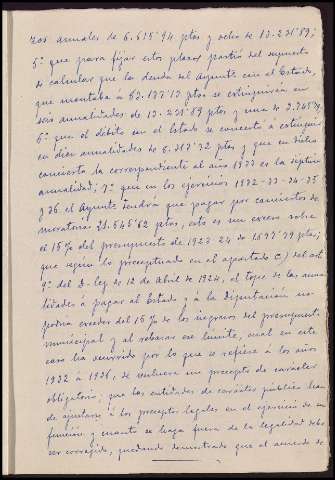 zos anuales de 6.515'94 ptas y ocho de 13.231'89;
5º que para fijar estos plazos partió del supuesto
de calcular que la deuda del Ayuntº con el Estado,
que montaba a 63.177'13 ptas se extinguiría en
seis anualidades de 13.231'89 ptas y una de
6º que el débito con el Estado se concertó a extinguir
en diez anualidades de 6.317'32 ptas y que en dicho
concierto la correspondiente al año 1933 es la séptima
anualidad; 7º que en los ejercicios 1932-33-34-35
y 36 el Ayuntº tendrá que pagar por conciertos de
moratorias 21.545'62 ptas, esto es un exceso sobre
el 15% del presupuesto de 1923-24 de 1.677'39 ptas;
que según lo preceptuado en el apartado c) del art.
9º del D-ley de 12 de Abril de 1924, el tope de las anua-
lidades a pagar al Estado y a la Diputación no
podrá exceder del 15% de los ingresos del presupuesto
municipal y al rebasar ese límite, cual en este
caso ha ocurrido por lo que se refiere a los años
1932 a 1936, se vulnera un precepto de carácter
obligatorio; que las entidades de carácter público han
de ajustarse a los preceptos legales en el ejercicio de su
función y cuanto se haga fuera de la legalidad debe
ser corregido, quedando demostrado que el acuerdo de